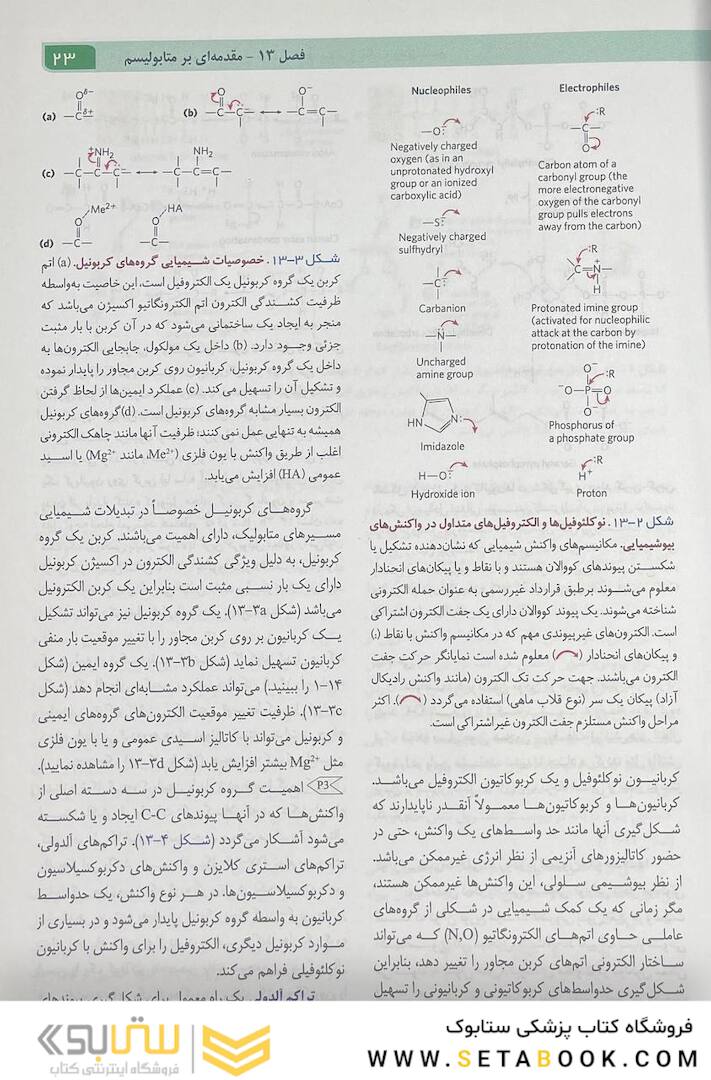 فصل ۱۳ - مقدمه‌ای بر متابولیسم
۲۳
Nucleophiles
Electrophiles
—O:
Negatively charged
oxygen (as in an
unprotonated hydroxyl
group or an ionized
carboxylic acid)
:R
—C—
O
Carbon atom of a
carbonyl group (the
more electronegative
oxygen of the carbonyl
group pulls electrons
away from the carbon)
—S:
Negatively charged
sulfhydryl
—C:
Carbanion
:R
C=N⁺—
H
Protonated imine group
(activated for nucleophilic
attack at the carbon by
protonation of the imine)
—N—
Uncharged
amine group
HN N:
Imidazole
O⁻ :R
⁻O—P=O
O⁻
Phosphorus of
a phosphate group
H—O:
Hydroxide ion
:R
H⁺
Proton
شکل ۲-۱۳. نوکلئوفیل‌ها و الکتروفیل‌های متداول در واکنش‌های
بیوشیمیایی. مکانیسم‌های واکنش شیمیایی که نشان‌دهنده تشکیل یا
شکستن پیوندهای کووالان هستند و با نقاط و یا پیکان‌های انحنادار
معلوم می‌شوند برطبق قرارداد غیررسمی به عنوان حمله الکترونی
شناخته می‌شوند. یک پیوند کووالان دارای یک جفت الکترون اشتراکی
است. الکترون‌های غیرپیوندی مهم که در مکانیسم واکنش با نقاط (:)
و پیکان‌های انحنادار () معلوم شده است نمایانگر حرکت جفت
الکترون می‌باشند. جهت حرکت تک الکترون (مانند واکنش رادیکال
آزاد) پیکان یک سر (نوع قلاب ماهی) استفاده می‌گردد (). اکثر
مراحل واکنش مستلزم جفت الکترون غیراشتراکی است.
کربانیون نوکلئوفیل و یک کربوکاتیون الکتروفیل می‌باشد.
کربانیون‌ها و کربوکاتیون‌ها معمولاً آنقدر ناپایدارند که
شکل‌گیری آنها مانند حد واسط‌های یک واکنش، حتی در
حضور کاتالیزورهای آنزیمی از نظر انرژی غیرممکن می‌باشد.
از نظر بیوشیمی سلولی، این واکنش‌ها غیرممکن هستند،
مگر زمانی که یک کمک شیمیایی در شکلی از گروه‌های
عاملی حاوی اتم‌های الکترونگاتیو (N,O) که می‌تواند
ساختار الکترونی اتم‌های کربن مجاور را تغییر دهد، بنابراین
شکل‌گیری حدواسط‌های کربوکاتیونی و کربانیونی را تسهیل
(a)
Oδ−
—Cδ+
(b)
O
—C—C—
O⁻
—C=C—
(c)
⁺NH₂
—C—C—C—
NH₂
—C—C=C—
(d)
O Me²⁺
—C—
O HA
—C—
شکل ۳-۱۳. خصوصیات شیمیایی گروه‌های کربونیل. (a) اتم
کربن یک گروه کربونیل یک الکتروفیل است، این خاصیت به‌واسطه
ظرفیت کشندگی الکترون اتم الکترونگاتیو اکسیژن می‌باشد که
منجر به ایجاد یک ساختمانی می‌شود که در آن کربن با بار مثبت
جزئی وجود دارد. (b) داخل یک مولکول، جابجایی الکترون‌ها به
داخل یک گروه کربونیل، کربانیون روی کربن مجاور را پایدار نموده
و تشکیل آن را تسهیل می‌کند. (c) عملکرد ایمین‌ها از لحاظ گرفتن
الکترون بسیار مشابه گروه‌های کربونیل است. (d) گروه‌های کربونیل
همیشه به تنهایی عمل نمی‌کنند؛ ظرفیت آنها مانند چاهک الکترونی
اغلب از طریق واکنش با یون فلزی (Me²⁺، مانند Mg²⁺) یا اسید
عمومی (HA) افزایش می‌یابد.
گروه‌های کربونیل خصوصاً در تبدیلات شیمیایی
مسیرهای متابولیک، دارای اهمیت می‌باشند. کربن یک گروه
کربونیل، به دلیل ویژگی کشندگی الکترون در اکسیژن کربونیل
دارای یک بار نسبی مثبت است بنابراین یک کربن الکتروفیل
می‌باشد (شکل ۱۳-۳a). یک گروه کربونیل نیز می‌تواند تشکیل
یک کربانیون بر روی کربن مجاور را با تغییر موقعیت بار منفی
کربانیون تسهیل نماید (شکل ۱۳-۳b). یک گروه ایمین (شکل
۱-۱۴ را ببینید.) می‌تواند عملکرد مشابه‌ای انجام دهد (شکل
۱۳-۳c). ظرفیت تغییر موقعیت الکترون‌های گروه‌های ایمینی
و کربونیل می‌تواند با کاتالیز اسیدی عمومی و یا با یون فلزی
مثل Mg²⁺ بیشتر افزایش یابد (شکل ۱۳-۳d را مشاهده نمایید).
P3 اهمیت گروه کربونیل در سه دسته اصلی از
واکنش‌ها که در آنها پیوندهای C-C ایجاد و یا شکسته
می‌شود آشکار می‌گردد (شکل ۴-۱۳). تراکم‌های آلدولی،
تراکم‌های استری کلایزن و واکنش‌های دکربوکسیلاسیون
و دکربوکسیلاسیون‌ها. در هر نوع واکنش، یک حدواسط
کربانیون به واسطه گروه کربونیل پایدار می‌شود و در بسیاری از
موارد کربونیل دیگری، الکتروفیل را برای واکنش با کربانیون
نوکلئوفیلی فراهم می‌کند.
تراکم آلدولی یک راه معمول برای شکل‌گیری پیوندهای
فروشگاه کتاب پزشکی ستابوک
WWW.SETABOOK.COM
ستابوک
فروشگاه اینترنتی کتاب